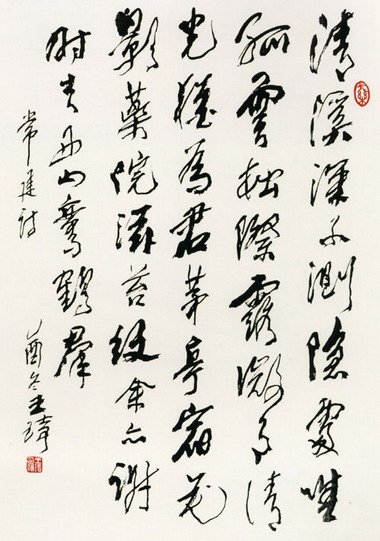 清溪深不測隱處唯
孤雲松際露微月清
光猶為君茅亭宿花
影藥院滋苔紋余亦謝
時去西山鸞鶴群
常建詩
乙酉冬王瑋